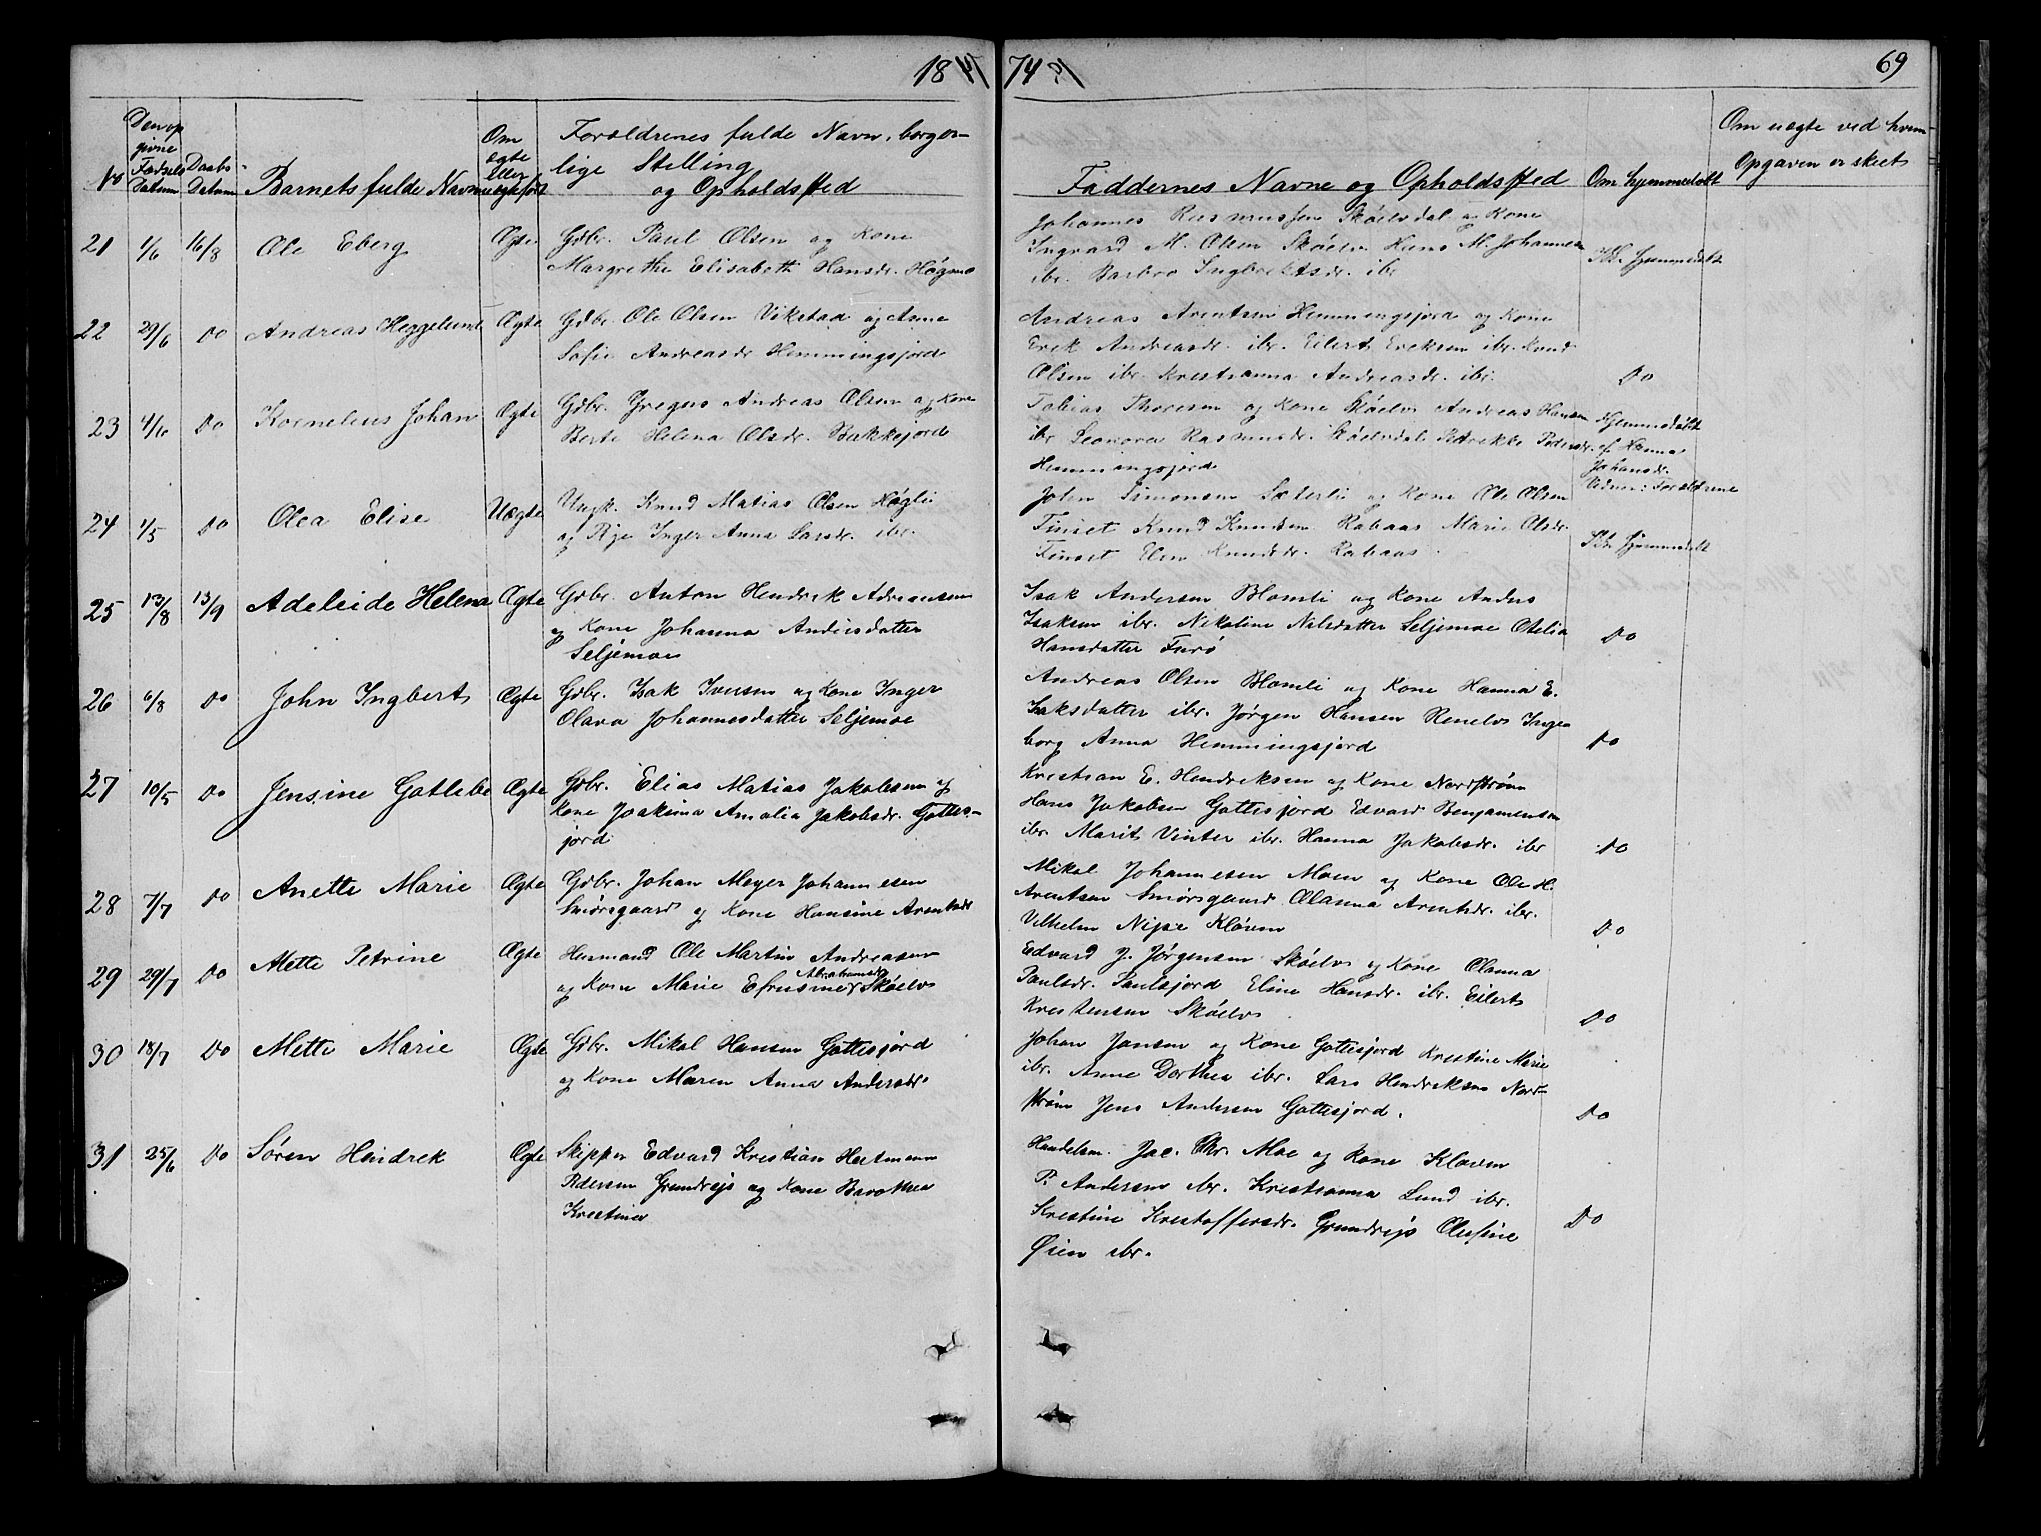 18 74
69
No
Den opgivne Fødsels Datum
Daabs Datum
Barnets fulde Navn
Om ægte eller uægte født
Forældrenes fulde Navn, borger-
lige Stilling
og Opholdssted
Faddernes Navne og Opholdssted
Om hjemmedøbt
Om uægte ved hvem
Opgaven er skeet
21 1/6 16/8 Ole Eberg Ægte
Gdbr. Paul Olsen og Kone
Margrethe Elisabeth Hansdr. Høgmo
Johannes Rasmussen Skøelvdal og Kone
Ingvard M. Olsen Skøelv Hans M. Johannesen
ibr. Barbro Ingbrektsdr. ibr
Ikke hjemmedøbt
22 29/6 Do Andreas Heggelund Ægte
Gdbr. Ole Olsen Vikstad og Anne
Sofie Andreasdr Hemmingsjord
Andreas Arentsen Hemmingsjord og Kone
Erek Andreasdr. ibr. Eilert Ereksen ibr. Knud
Olsen ibr. Krestianna Andreasdr. ibr.
Do
23 4/6 Do Kornelius Johan Ægte
Gdbr. Gregers Andreas Olsen og Kone
Berte Helena Olsdr. Bakkejord
Tobias Thoresen og Kone Skøelv Andreas Hansen
ibr Leonora Rasmusdr. Skøelvdal Petrikke Pedersdr.
Hemmingsjord
Hjemmedøbt
af Hanna
Johansdr.
Vidner: Forældrene
24 1/5 Do Olea Elise Uægte
Ungk. Knud Matias Olsen Høgli
og Pige Inger Anna Larsdr. ibr.
John Simonsen Sæterli og Kone Ole Olsen
Finset Knud Knudsen Rabaas Marie Olsdr.
Finset Elen Knudsdr. Rabaas
Ikke hjemmedøbt
25 13/8 13/9 Adeleide Helena Ægte
Gdbr. Anton Hendrek Adreansen
og Kone Johanna Andersdatter
Seljemoe
Isak Andersen Blomli og Kone Anders
Isaksen ibr. Nekoline Nilsdatter Seljemoe Otelia
Hansdatter Furø
Do
26 6/8 Do John Ingbert Ægte
Gdbr. Isak Iversen og Kone Inger
Olava Johannesdatter Seljemoe
Andreas Olsen Blomli og Kone Hanna E.
Isaksdatter ibr. Jørgen Hansen Renelv Inge
borg Anna Hemmingsjord
Do
27 10/5 Do Jensine Gotlebe Ægte
Gdbr. Elias Matias Jakobsen og
Kone Joakima Amalia Jakobsdr. Gottes-
jord
Krestian E. Hendreksen og Kone Nordstrøm
Hans Jakobsen Gottesjord Edvard Benjamensen
ibr. Marit Vinter ibr. Hanna Jakobsdr. ibr
Do
28 7/7 Do Anette Marie Ægte
Gdbr. Johan Meyer Johannesen
Smørsgaard og Kone Hansine Arentsdr
Mikal Johannesen Moen og Kone Ole H.
Arentsen Smørsgaard Olanna Arentsdr. ibr.
Vilhelm Nipe Kløven
Do
29 29/7 Do Mette Petrine Ægte
Husmand Ole Martin Andreasen
og Kone Marie Efrusine Abrahamsdr Skøelv
Edvard J. Jørgensen Skøelv og Kone Olanna
Paulsdr. Paulsjord Eline Hansdr. ibr. Eilert
Krestensen Skøelv
Do
30 18/7 Do Mette Marie Ægte
Gdbr. Mikal Hansen Gottesjord
og Kone Maren Anna Andersdr
Johan Jansen og Kone Gottesjord Krestine Marie
ibr. Anne Dorthea ibr. Lars Hendreksen Nord-
strøm Jens Andersen Gottesjord.
Do
31 25/6 Do Søren Hendrek Ægte
Skipper Edvard Kristian Hartmann
Pedersen Grundrejs og Kone Barothea
Krestina
Handelsm. Jac. Chr. Moe og Kone Kløven
P. Andersen ibr. Krestianna Lund ibr.
Krestine Krestoffersdr. Grundrejs Olufine
Øien ibr.
Do